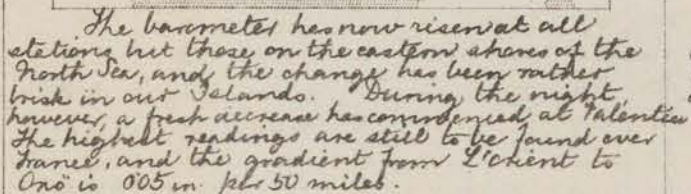 The barometer has now risen at all
stations but those on the eastern shores of the
North Sea, and the change has been rather
brisk in our Islands. During the night,
however, a fresh decrease has commenced at Valentia
The highest readings are still to be found over
France, and the gradient from L'Orient to
Oxö is 0.05 in. per 50 miles.